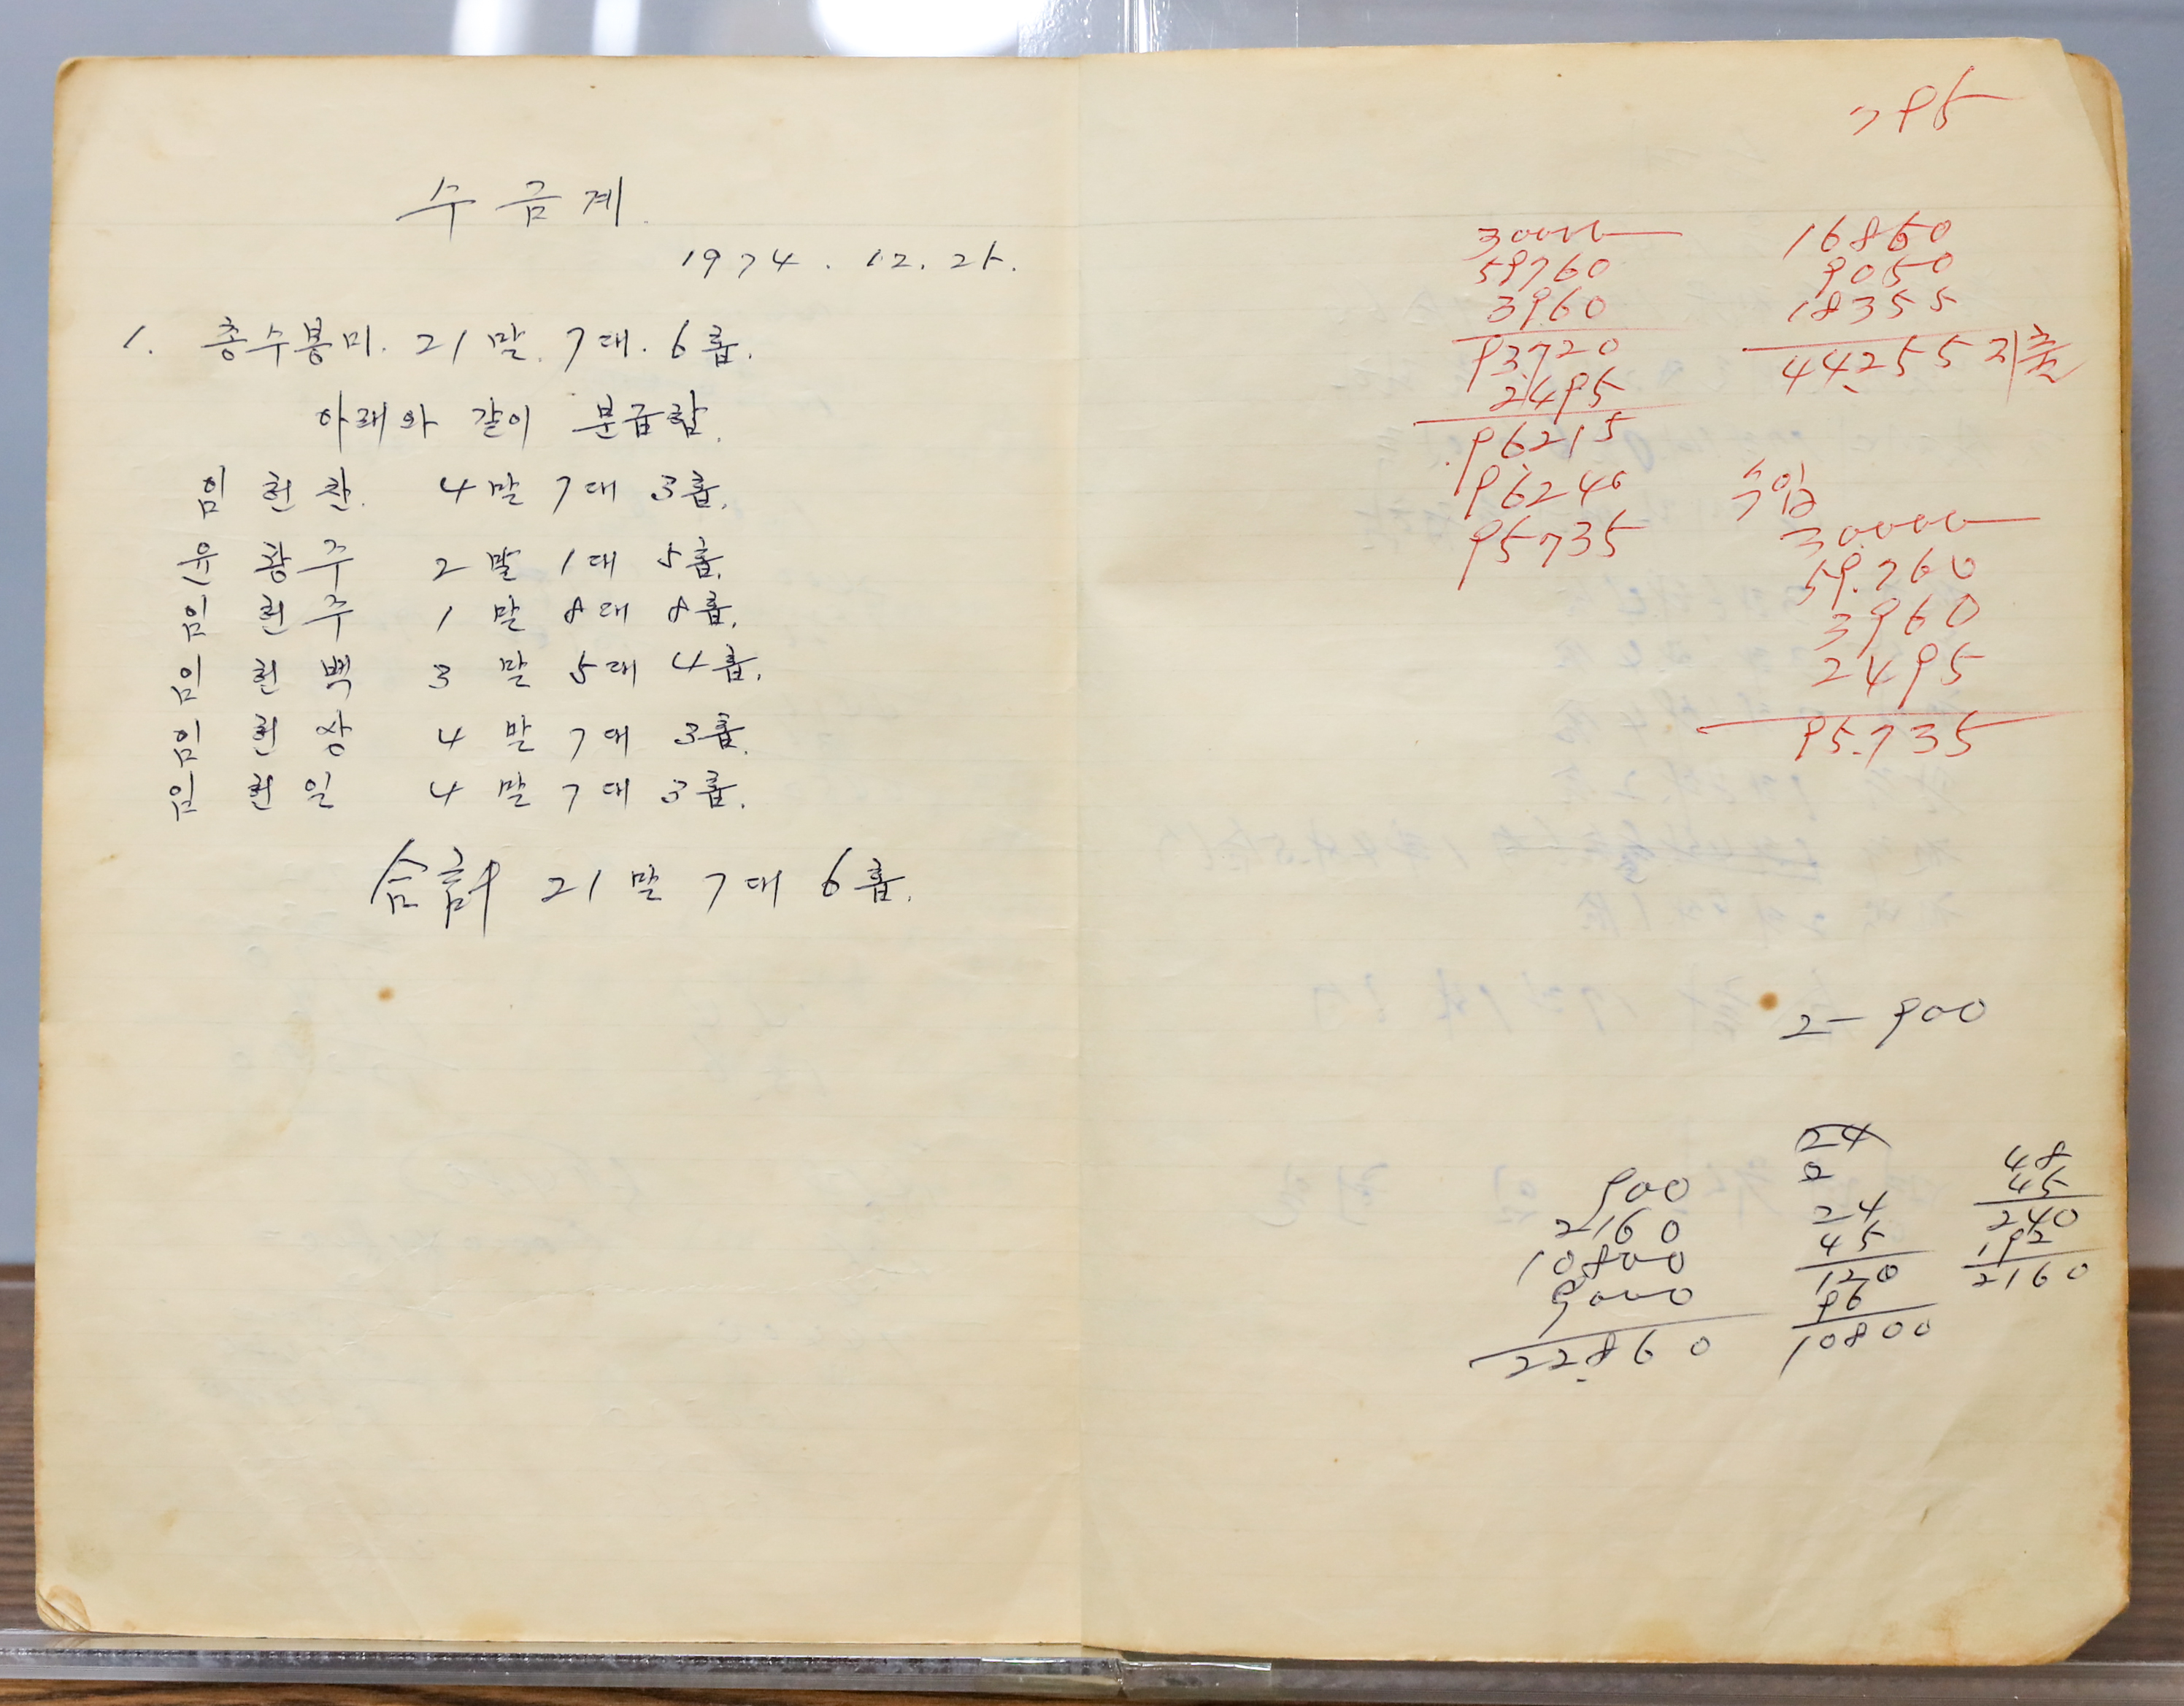 수금계.
1974. 12. 21.
1. 총수봉미. 21말. 7대. 6홉.
아래와 같이 분급함.
임헌찬. 4말 7대 3홉.
유창주 2말 1대 5홉.
임헌주 1말 8대 8홉.
임헌백 3말 5대 4홉.
임헌상 4말 7대 3홉.
임헌일 4말 7대 3홉.
合計 21말 7대 6홉.
795
30000
59760
3960
93720
2495
96215
96240
95735
16850
9050
18355
44.255 지출
수입
30.000
59.760
3960
2495
95.735
2-900
900
2160
10800
9000
22.860
24
2
24
45
120
96
10800
48
45
240
192
2160